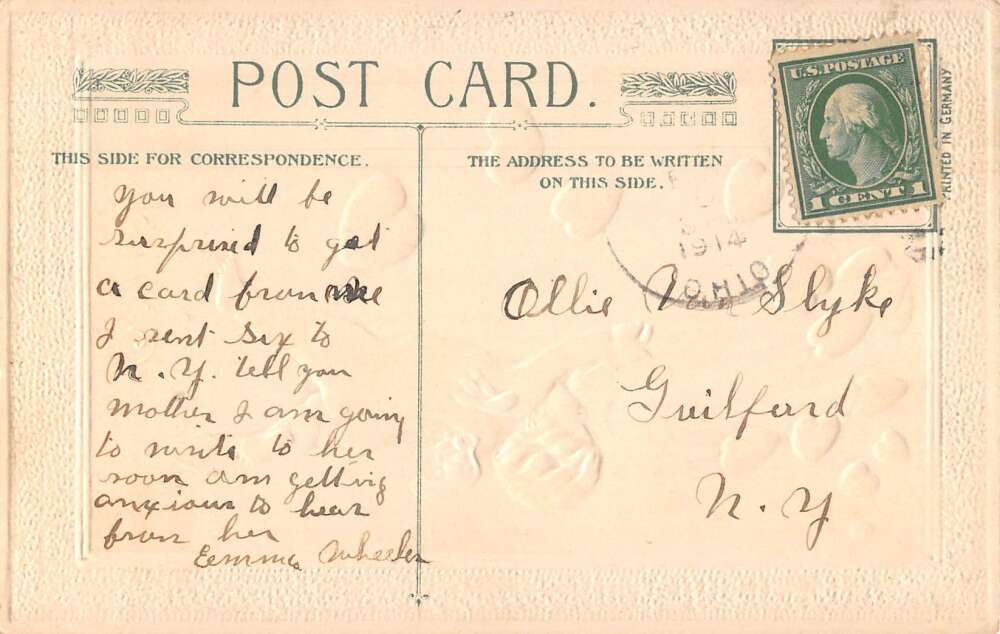 POST CARD.
U.S. POSTAGE
1 CENT 1
PRINTED IN GERMANY
THIS SIDE FOR CORRESPONDENCE.
THE ADDRESS TO BE WRITTEN
ON THIS SIDE.
1914
OHIO
You will be
surprised to get
a card from me
I sent six to
N. Y. tell you
mother I am going
to write to her
soon am getting
anxious to hear
from her
Eemma Wheeler
Ollie Van Slyke
Guilford
N. Y